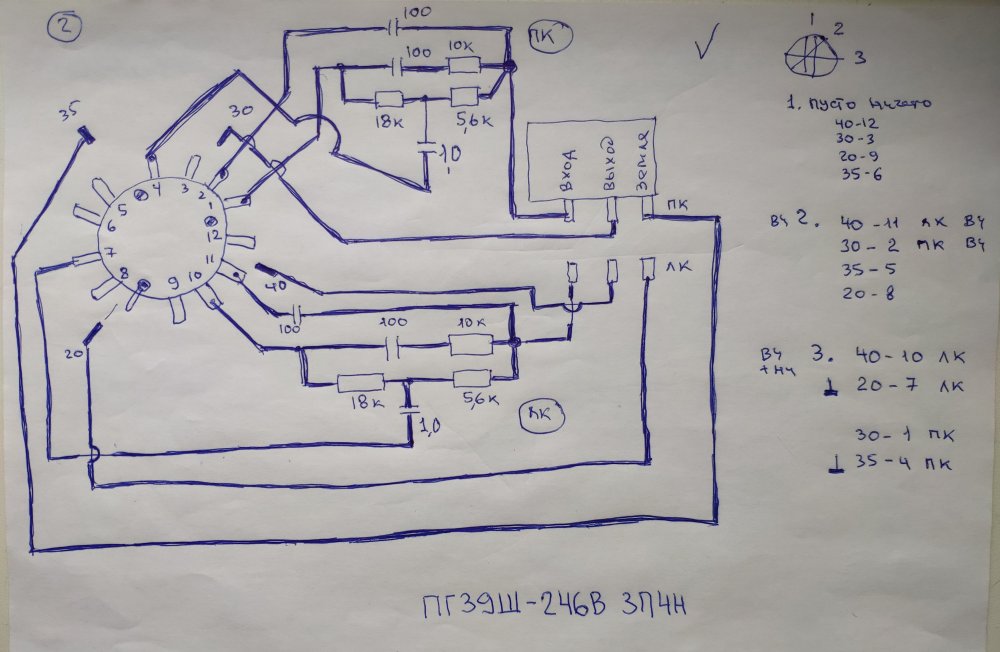 2
100
ПК
100
10к
18к
5,6к
1,0
35
30
ВХОД
ВЫХОД
ЗЕМЛЯ
ПК
ЛК
4
3
2
1
12
11
10
9
8
7
6
5
40
20
100
100
10к
18к
5,6к
1,0
ЛК
1
2
3
1. ПУСТО НИЧЕГО
40-12
30-3
20-9
35-6
ВЧ 2. 40-11 ЛК ВЧ
30-2 ПК ВЧ
35-5
20-8
ВЧ
+НЧ
3. 40-10 ЛК
20-7 ЛК
30-1 ПК
35-4 ПК
ПГ39Ш-246В 3П4Н